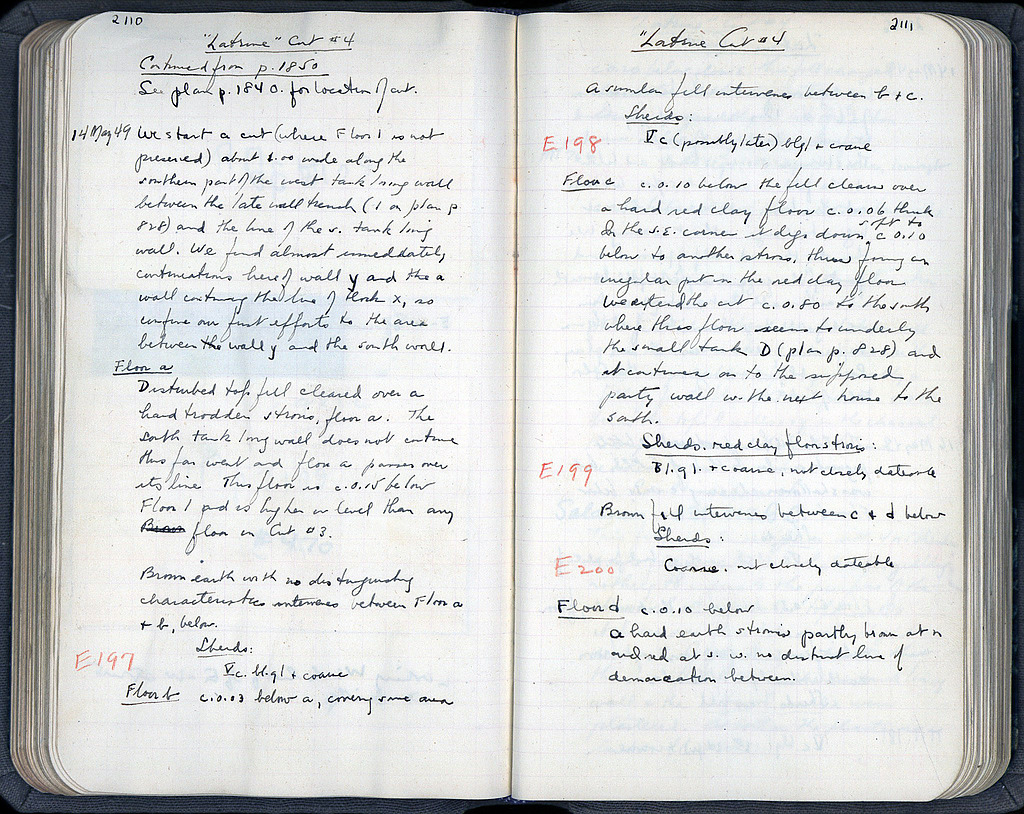 2110
"Latrine" Cut #4
Continued from p. 1850
See plan p. 1840. for location of cut.
14 May 49 We start a cut (where Floor 1 is not
preserved) about 1.00 wide along the
southern part of the west tank long wall
between the late wall trench (1 on plan p.
828) and the line of the s. tank long
wall. We find almost immediately
continuations here of wall y and the a
wall continuing the line of block x, so
confine our first efforts to the area
between the wall y and the south wall.
Floor a
Disturbed top fill cleared over a
hard trodden strosis, floor a. The
south tank long wall does not continue
this far west and floor a passes over
its line. This floor is c. 0.15 below
Floor 1 and is higher in level than any
Brown floor in Cut #3.
Brown earth with no distinguishing
characteristics intervenes between Floor a
+ b, below.
Sherds:
E197
V c. bl. gl + coarse
Floor b c. 0.03 below a, covering same area
2111
"Latrine" Cut #4
A similar fill intervenes between b + c.
Sherds:
E198
V c (possibly later) bl gl + coarse
Floor c c. 0.10 below the fill cleans over
a hard red clay floor c. 0.06 thick
In the S.E. corner it dips down soft to c 0.10
below to another strosis, thus forming an
irregular pit in the red clay floor
We extend the cut c. 0.80 to the south
where this floor seems to underly
the small tank D (plan p. 828) and
it continues on to the supposed
party wall w. the next house to the
south.
Sherds. red clay floor strosis:
E199
Bl. gl. + coarse, not closely dateable
Brown fill intervenes between c + d below
Sherds:
E200
Coarse. not closely dateable
Floor d c. 0.10 below
a hard earth strosis partly brown at n
and red at s. w. no distinct line of
demarcation between.